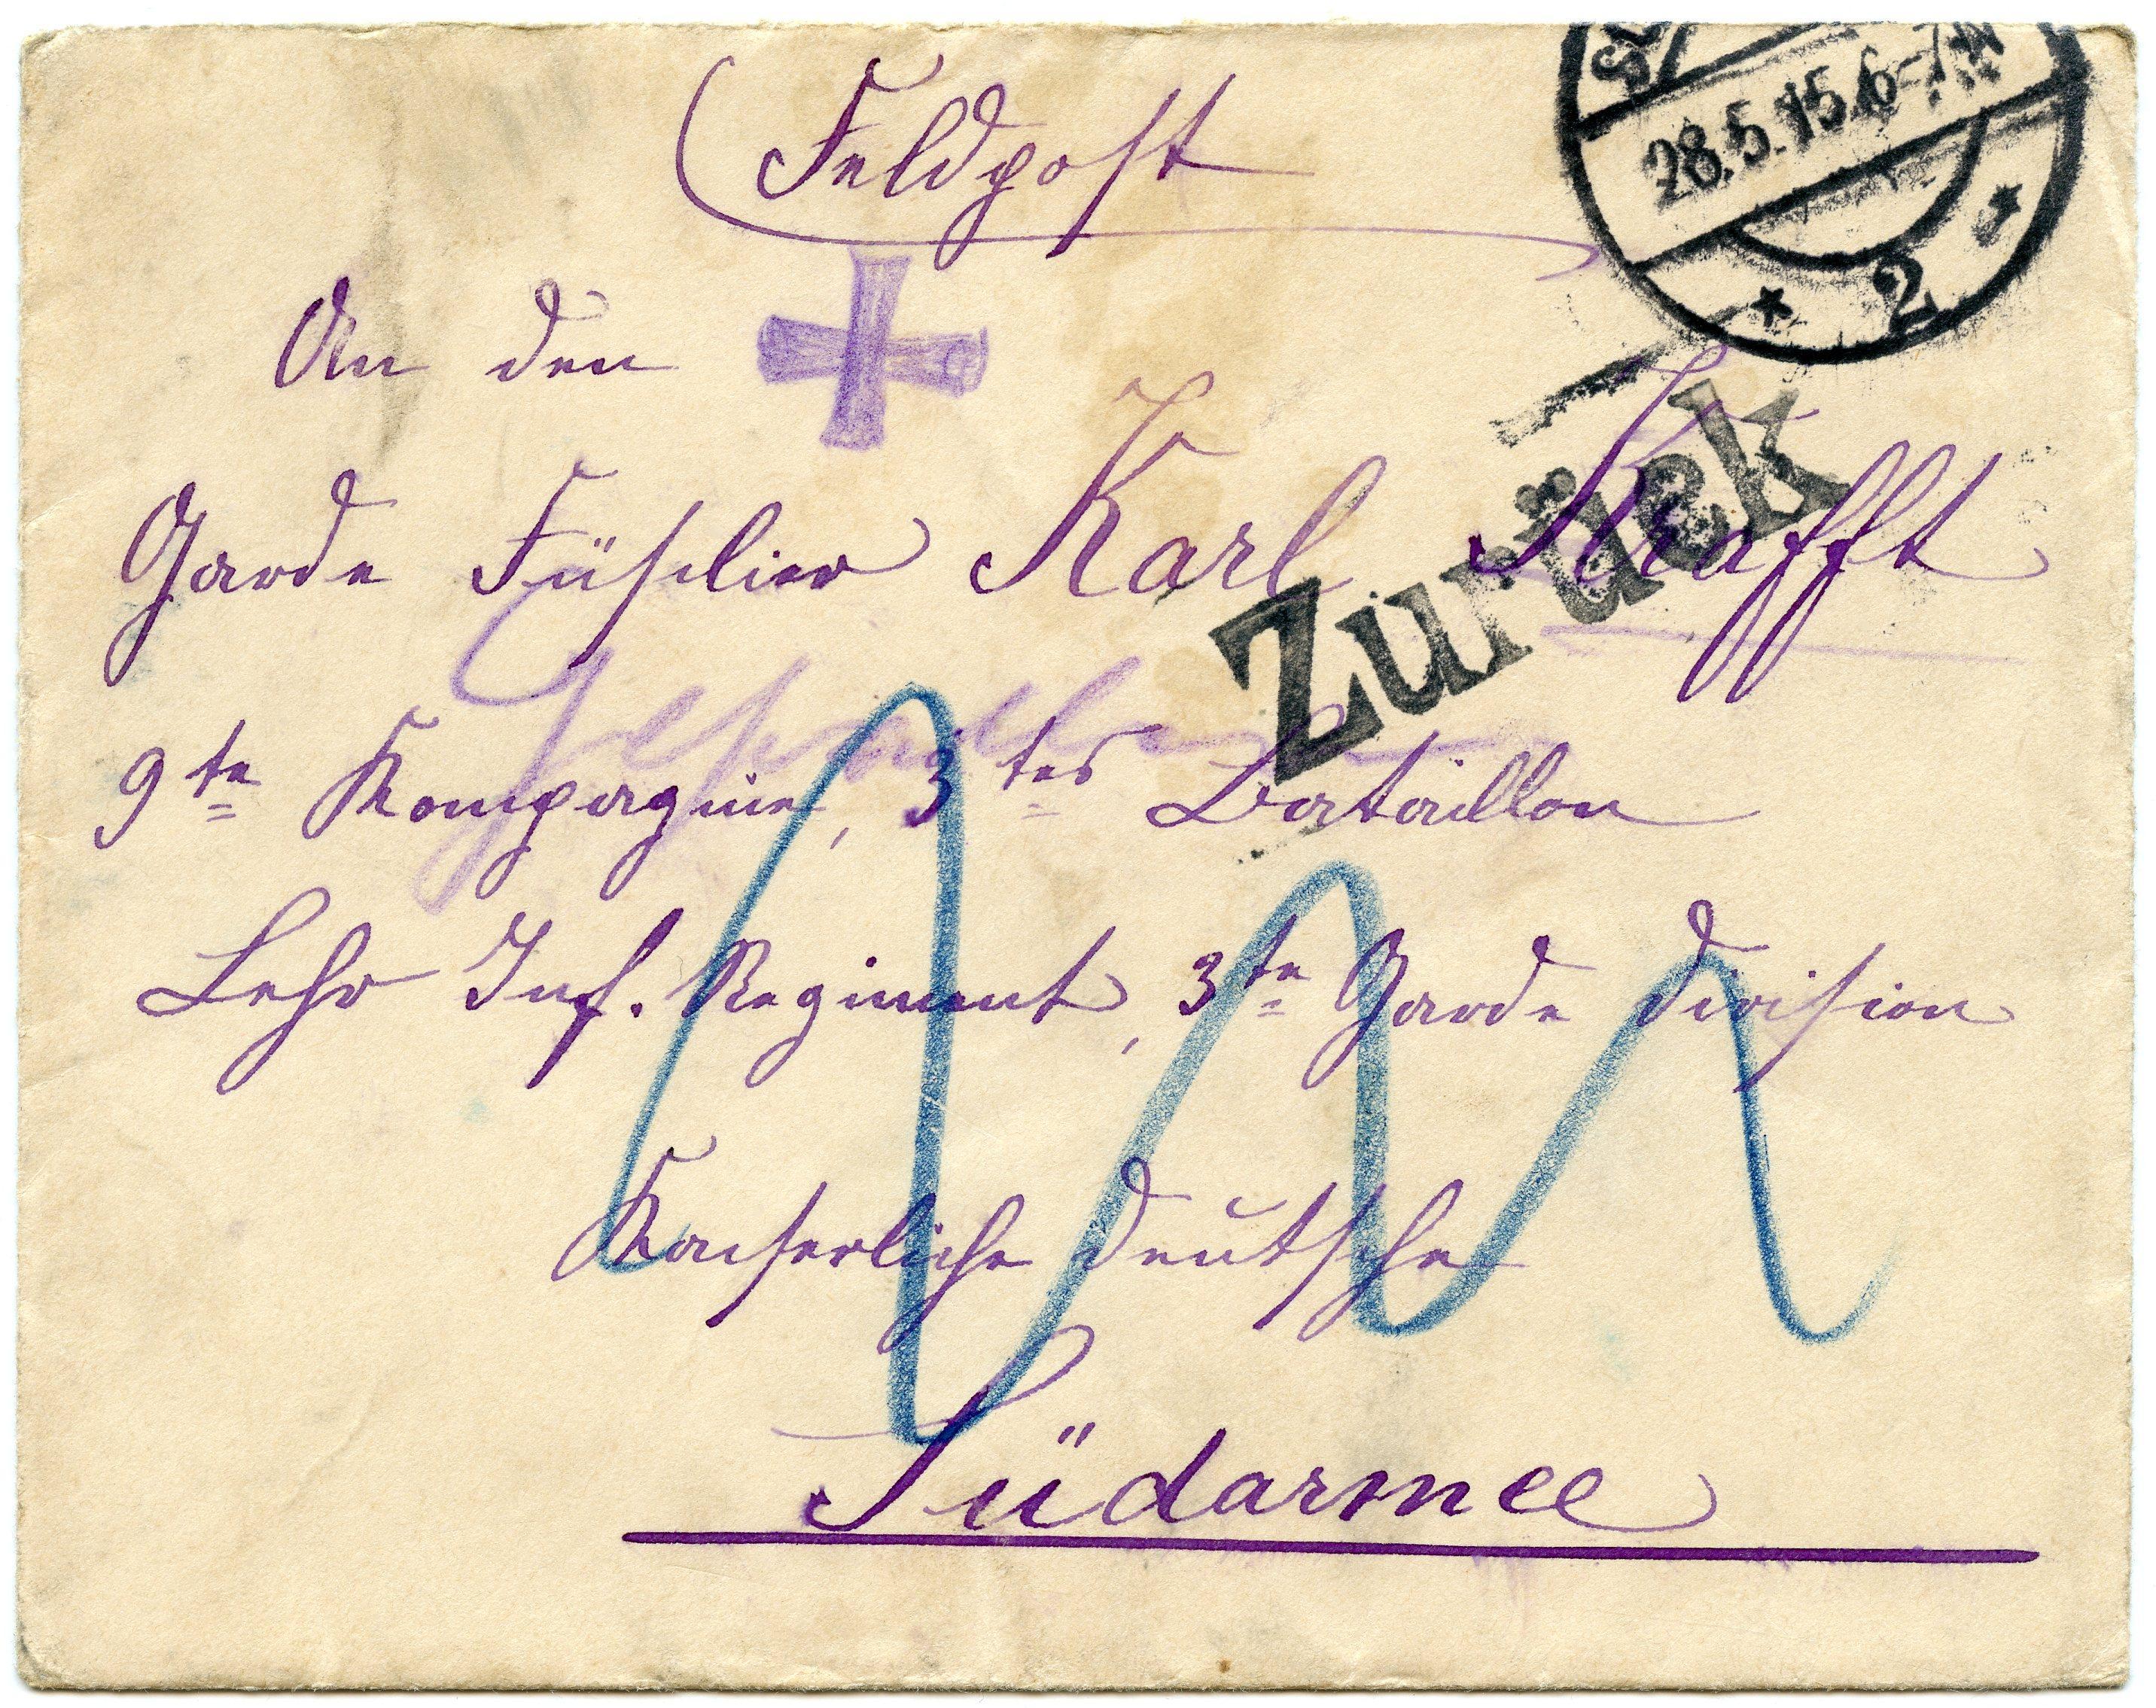 Feldpost
28.5.15.6-7N
* 2 *
An den
Zurück
Garde Füsilier Karl Krafft
Gefallen
9te Kompagnie, 3tes Bataillon
Lehr Inf. Regiment, 3te Garde Division
Kaiserliche Deutsche
Südarmee